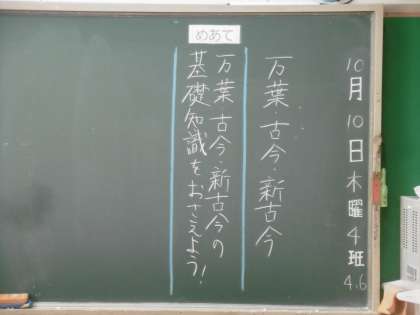 10月10日木曜4班4.6
万葉・古今・新古今
めあて
万葉・古今・新古今の
基礎知識をおさえよう!